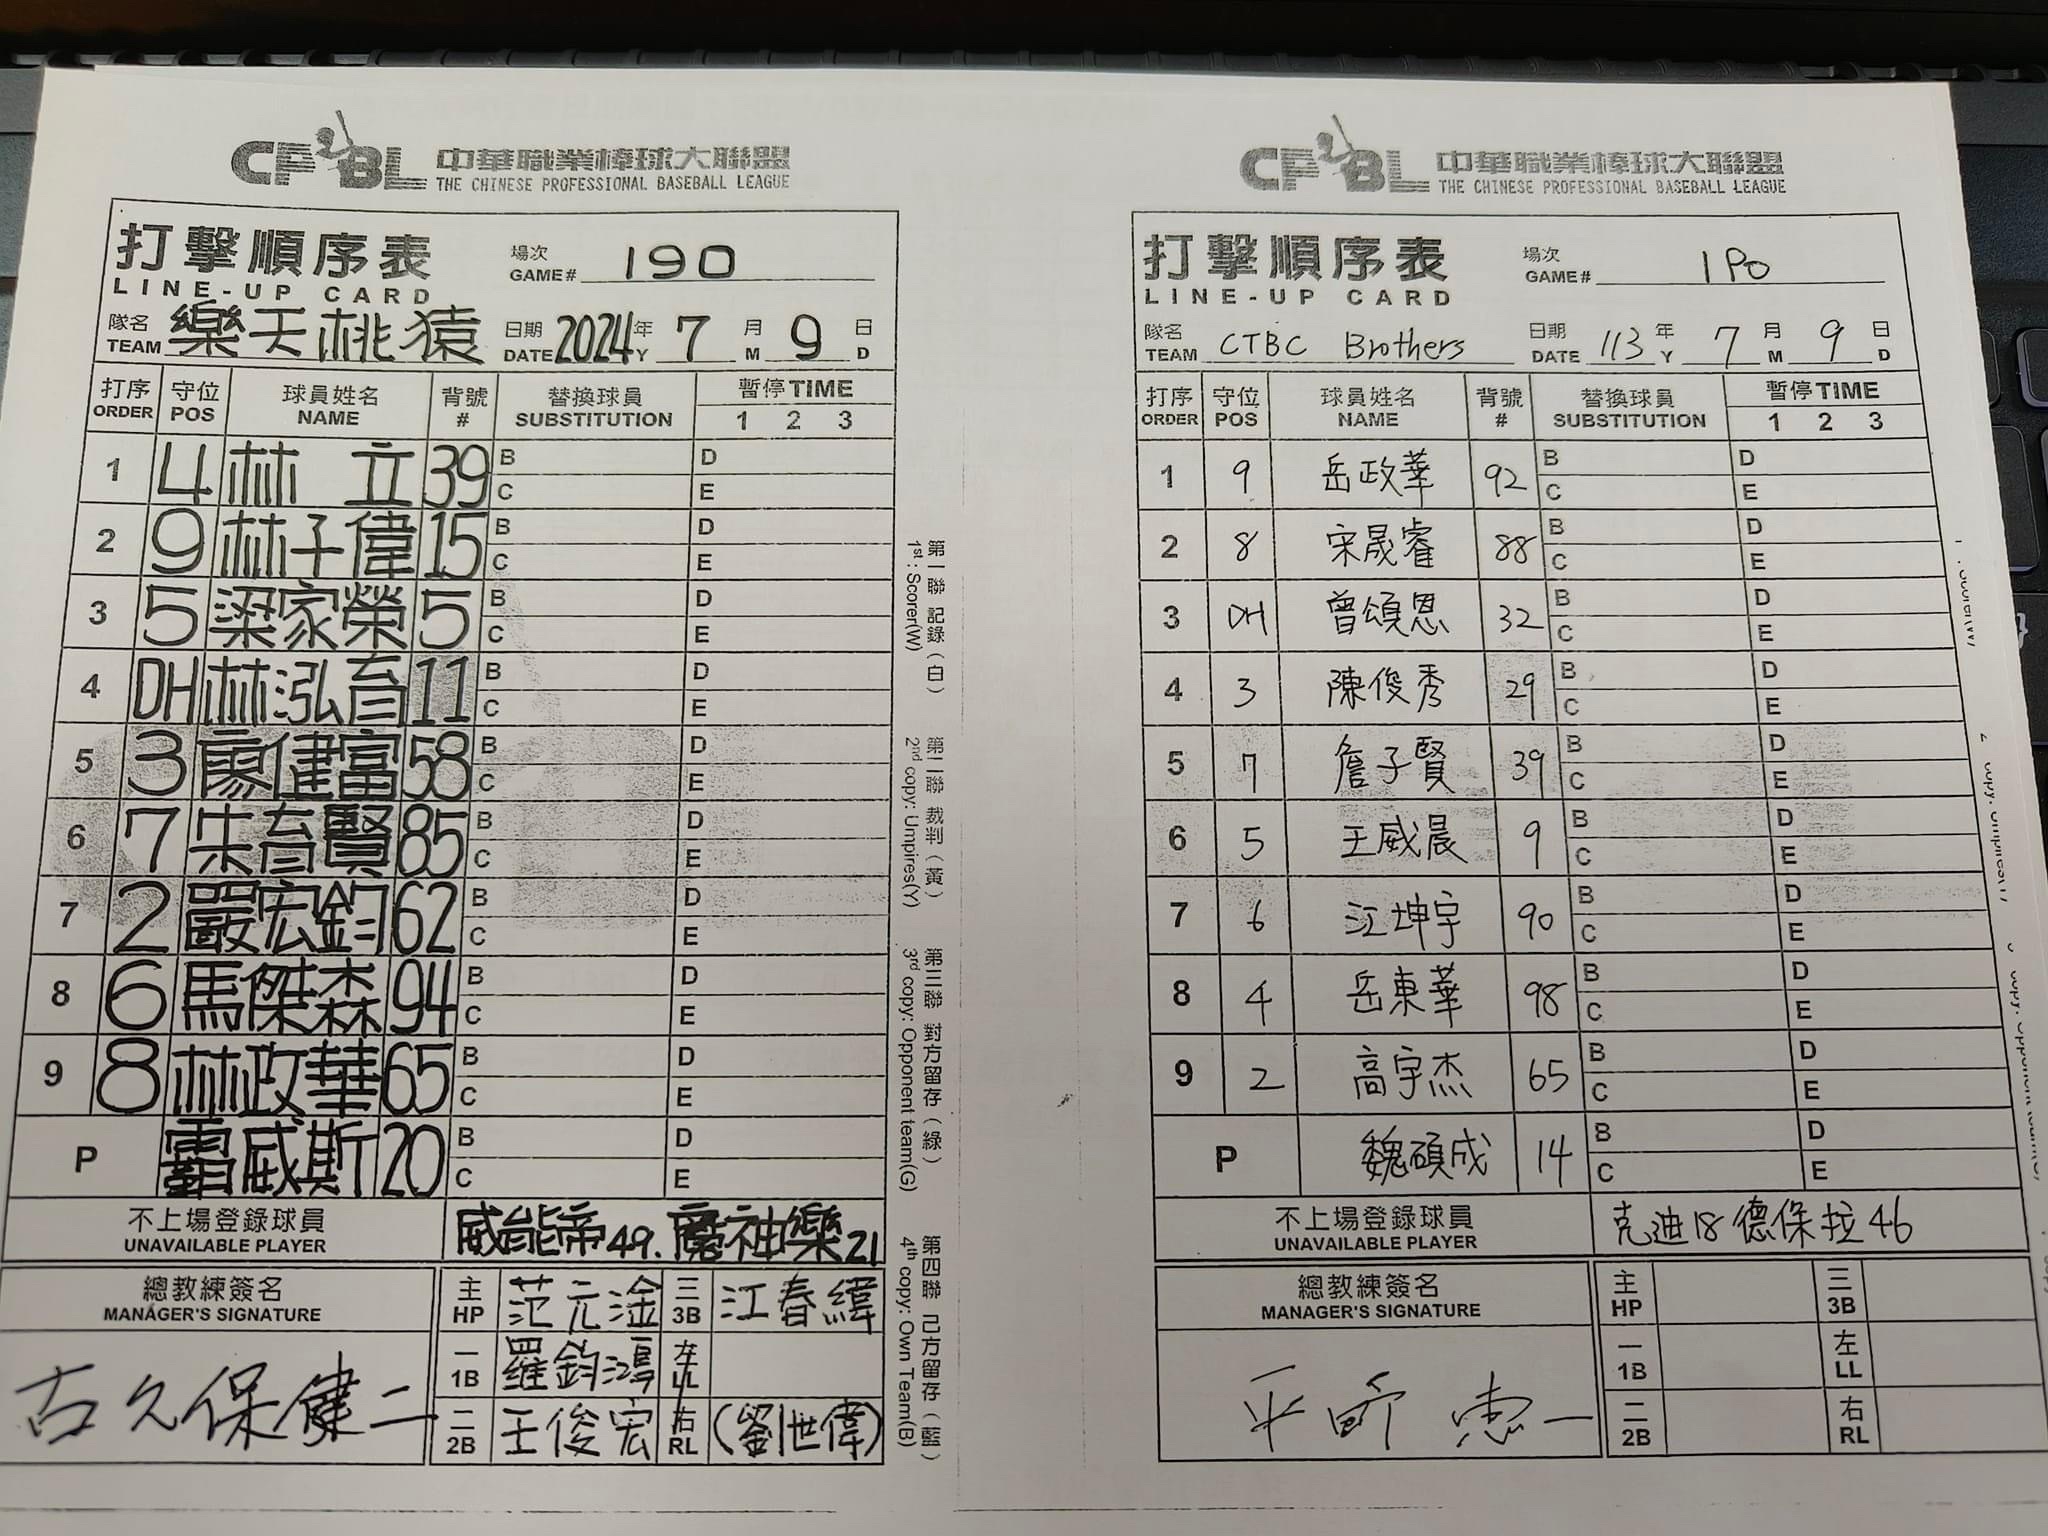 CPBL 中華職業棒球大聯盟
THE CHINESE PROFESSIONAL BASEBALL LEAGUE
打擊順序表 場次
LINE-UP CARD GAME# 190
隊名 樂天桃猿 日期 2024 年 7 月 9 日
TEAM DATE Y M D
打序 守位 球員姓名 背號 替換球員 暫停TIME
ORDER POS NAME # SUBSTITUTION 1 2 3
1 4 林立 39 B D
C E
2 9 林子偉 15 B D
C E
3 5 梁家榮 5 B D
C E
4 DH 林泓育 11 B D
C E
5 3 廖健富 58 B D
C E
6 7 朱育賢 85 B D
C E
7 2 嚴宏鈞 62 B D
C E
8 6 馬傑森 94 B D
C E
9 8 林政華 65 B D
C E
P 霸威斯 20 B D
C E
不上場登錄球員 威能帝49.魔神樂21
UNAVAILABLE PLAYER
總教練簽名 主 范元淦 三 江春緯
MANAGER'S SIGNATURE HP 3B
古久保健二 一 羅鈞鴻 左
1B LL
二 王俊宏 右 (劉世偉)
2B RL
第一聯 記錄(白)
1st : Scorer(W)
第二聯 裁判(黃)
2nd copy: Umpires(Y)
第三聯 對方留存(綠)
3rd copy: Opponent team(G)
第四聯 己方留存(藍)
4th copy: Own Team(B)
CPBL 中華職業棒球大聯盟
THE CHINESE PROFESSIONAL BASEBALL LEAGUE
打擊順序表 場次
LINE-UP CARD GAME# 190
隊名 CTBC Brothers 日期 113 年 7 月 9 日
TEAM DATE Y M D
打序 守位 球員姓名 背號 替換球員 暫停TIME
ORDER POS NAME # SUBSTITUTION 1 2 3
1 9 岳政華 92 B D
C E
2 8 宋晟睿 88 B D
C E
3 DH 曾頌恩 32 B D
C E
4 3 陳俊秀 29 B D
C E
5 7 詹子賢 39 B D
C E
6 5 王威晨 9 B D
C E
7 6 江坤宇 90 B D
C E
8 4 岳東華 98 B D
C E
9 2 高宇杰 65 B D
C E
P 魏碩成 14 B D
C E
不上場登錄球員 克迪18 德保拉46
UNAVAILABLE PLAYER
總教練簽名 主 三
MANAGER'S SIGNATURE HP 3B
平野惠一 一 左
1B LL
二 右
2B RL